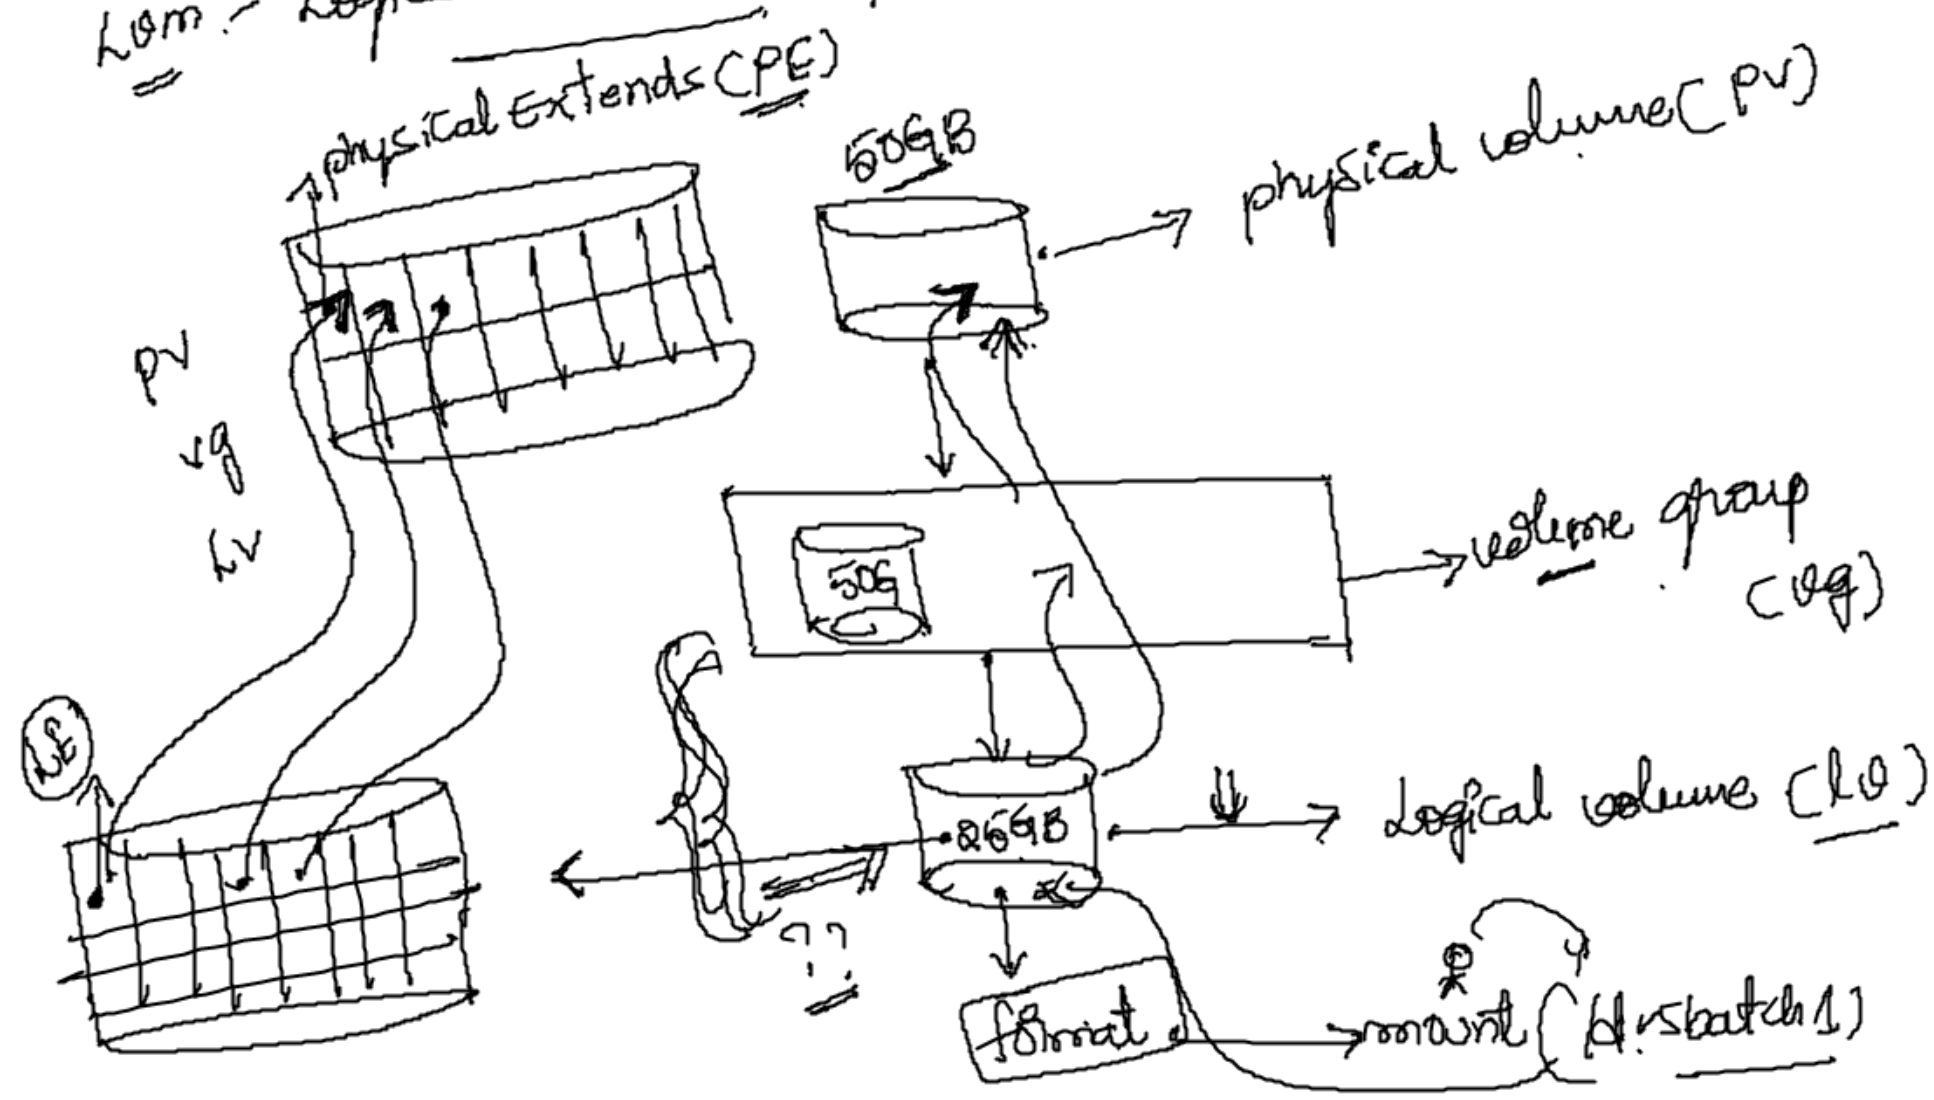 LVM :-
physical Extends (PE)
50GB
physical volume (PV)
PV
vg
LV
50G
volume group
(vg)
LE
25GB
Logical volume (lv)
??
format
mount